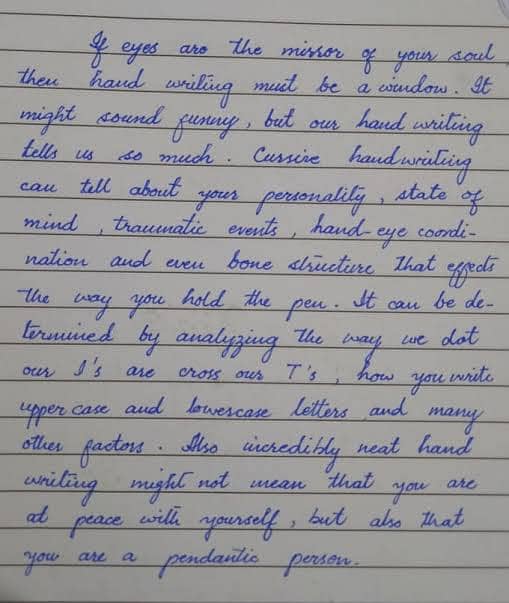 If eyes are the mirror of your soul,
then hand writing must be a window. It
might sound funny, but our hand writing
tells us so much. Cursive handwriting
can tell about your personality, state of
mind, traumatic events, hand-eye coordi-
nation and even bone structure that effects
the way you hold the pen. It can be de-
termined by analyzing the way we dot
our I's are cross our T's, how you write
upper case and lowercase letters and many
other factors. Also incredibly neat hand
writing might not mean that you are
at peace with yourself, but also that
you are a pendantic person.